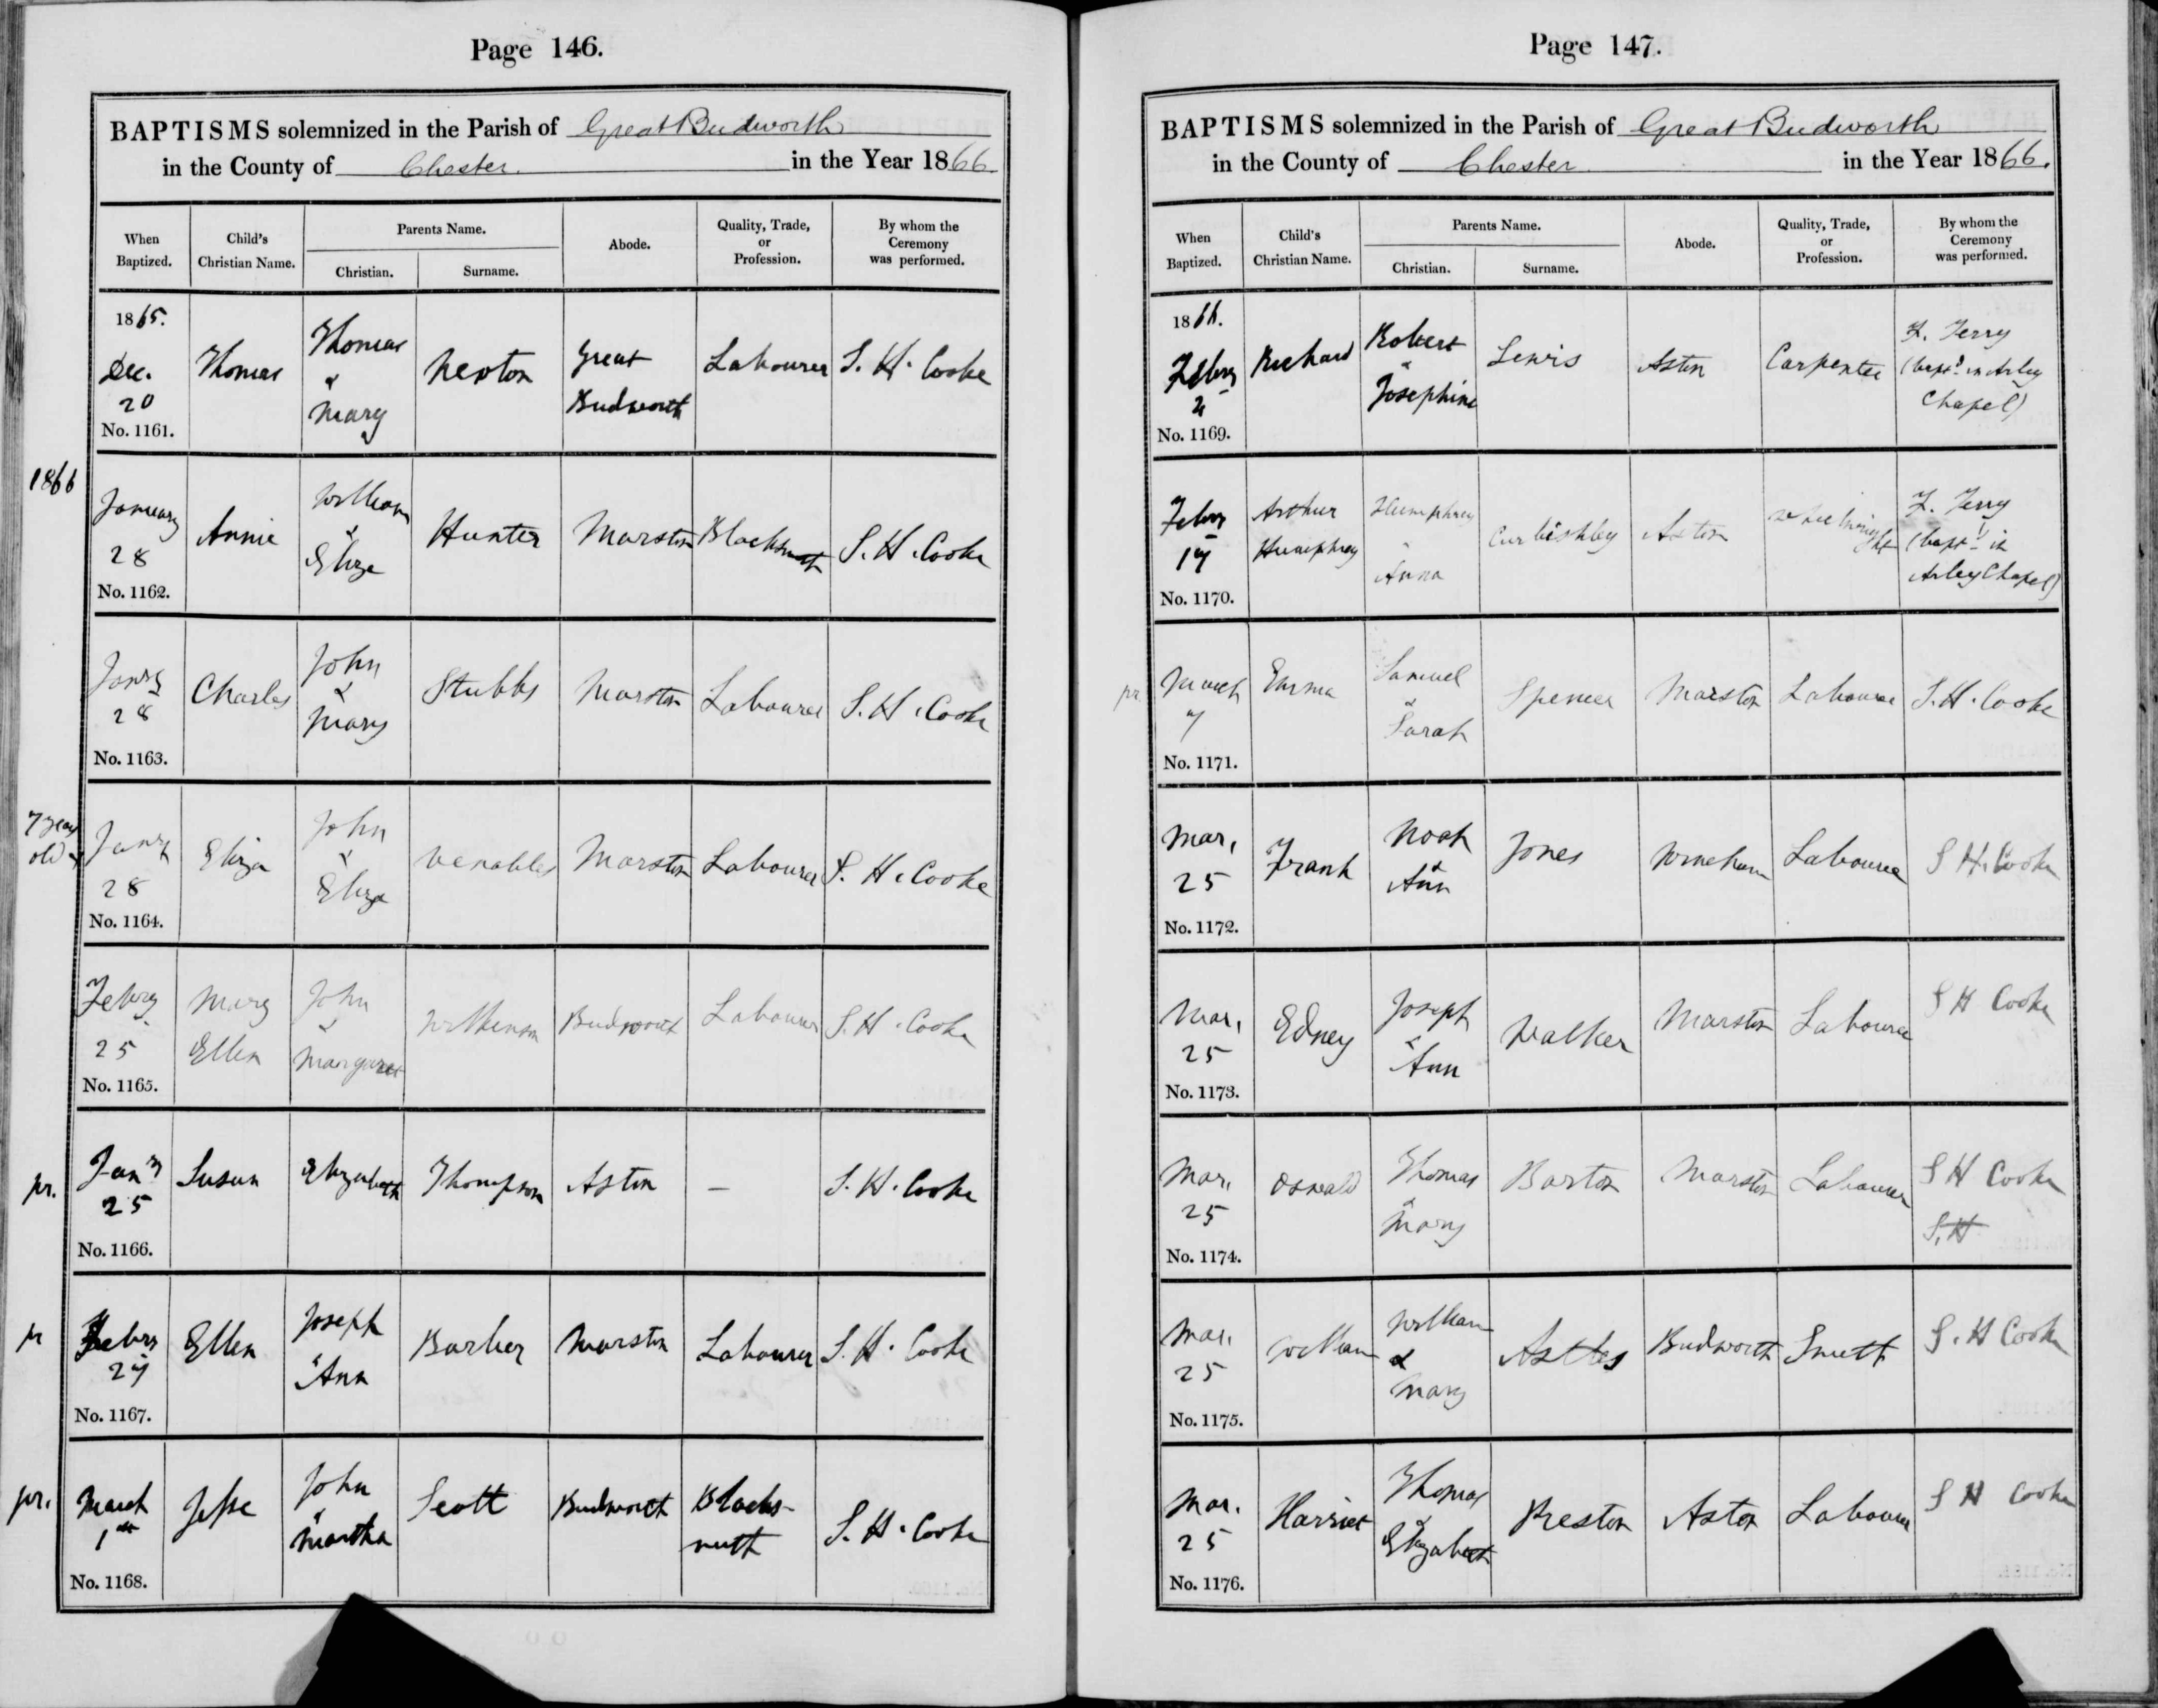 Page 146.
BAPTISMS solemnized in the Parish of Great Budworth
in the County of Chester. in the Year 1866.
When Baptized. Child's Christian Name. Parents Name. Christian. Surname. Abode. Quality, Trade, or Profession. By whom the Ceremony was performed.
1865. Dec. 20 No. 1161. Thomas Thomas & Mary Newton Great Budworth Labourer S. H. Cooke
1866
January 28 No. 1162. Annie William & Eliza Hunter Marston Blacksmith S. H. Cooke
Janry 28 No. 1163. Charles John & Mary Stubbs Marston Labourer S. H. Cooke
7 years old Janry 28 No. 1164. Eliza John & Eliza Venables Marston Labourer S. H. Cooke
Febry 25 No. 1165. Mary Ellen John & Margaret Wilkinson Budworth Labourer S. H. Cooke
pr. Jany 25 No. 1166. Susan Elizabeth Thompson Aston — S. H. Cooke
pr Febry 27 No. 1167. Ellen Joseph & Ann Barber Marston Labourer S. H. Cooke
pr. March 1st No. 1168. Jesse John & Martha Scott Budworth Blacks- mith S. H. Cooke
Page 147.
BAPTISMS solemnized in the Parish of Great Budworth
in the County of Chester in the Year 1866.
When Baptized. Child's Christian Name. Parents Name. Christian. Surname. Abode. Quality, Trade, or Profession. By whom the Ceremony was performed.
1866. Febry No. 1169. Richard Robert & Josephine Lewis Aston Carpenter F. Terry (bapt.d in Arley Chapel)
Febry 17 No. 1170. Arthur Humphrey Humphrey & Anna Curbishley Aston Wheelwright F. Terry (bapt.d in Arley Chapel)
pr. March 7 No. 1171. Emma Samuel & Sarah Spencer Marston Labourer S. H. Cooke
Mar. 25 No. 1172. Frank Noah & Ann Jones Wincham Labourer S H. Cooke
Mar. 25 No. 1173. Edney Joseph & Ann Walker Marston Labourer S H Cooke
Mar. 25 No. 1174. Oswald Thomas & Mary Barton Marston Labourer S H Cooke S. H
Mar. 25 No. 1175. William William & Mary Astles Budworth Smith S. H Cooke
Mar. 25 No. 1176. Harriet Thomas & Elizabeth Preston Aston Labourer S H Cooke